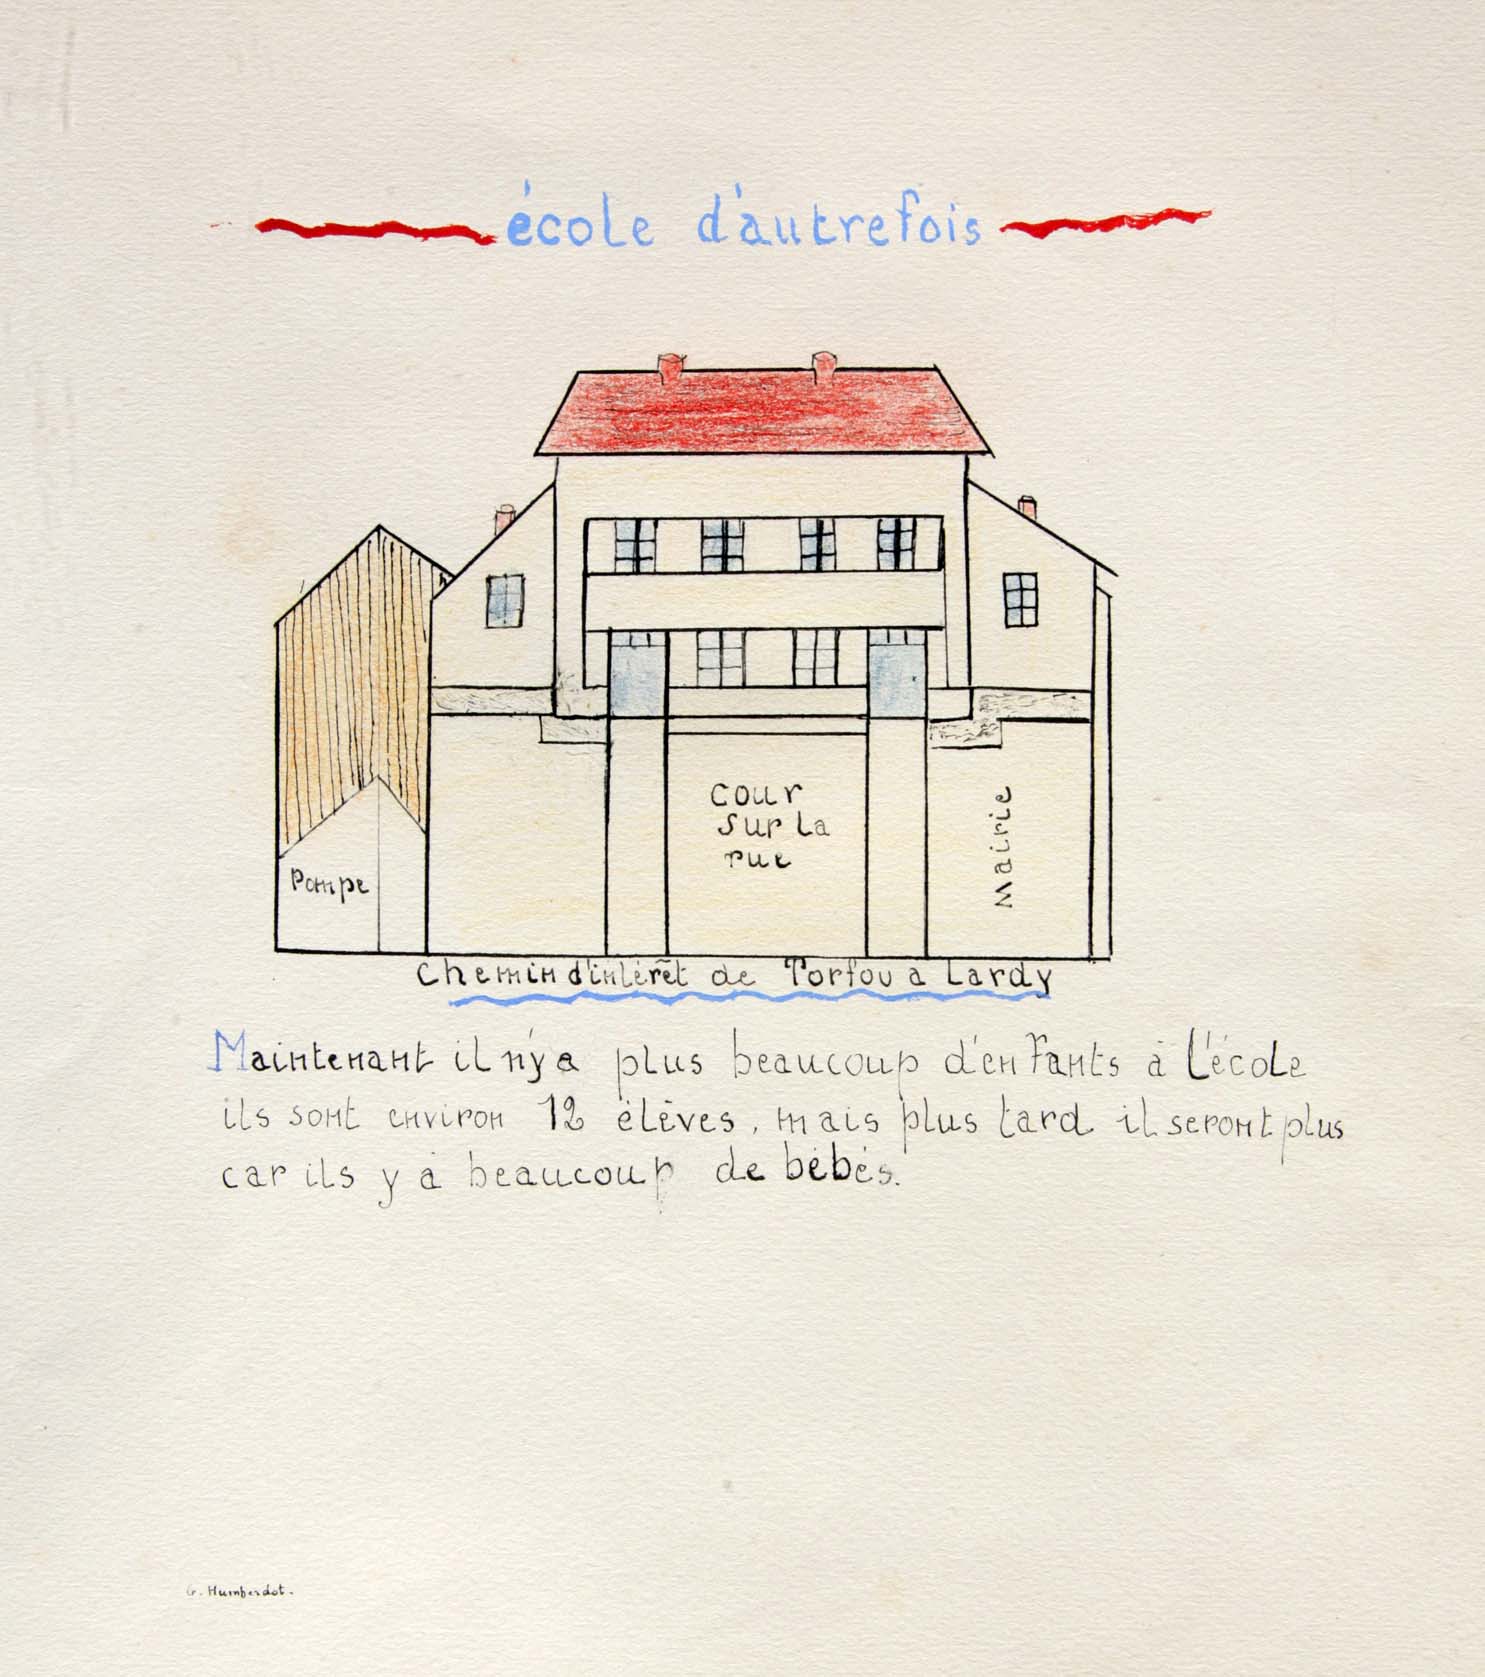 école d'autrefois
cour
sur la
rue
Mairie
Pompe
chemin d'intérêt de Torfou a Lardy
Maintenant il n'y a plus beaucoup d'enfants à l'école
ils sont environ 12 élèves, mais plus tard il seront plus
car ils y à beaucoup de bébés.
G. Humberdot.